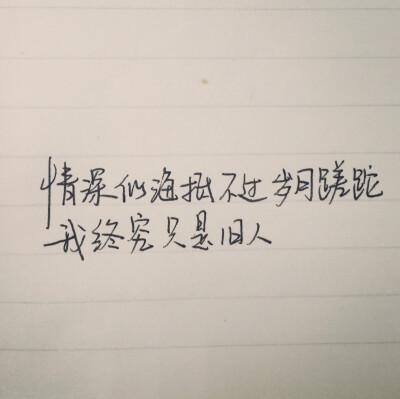 情深似海拙不过岁月蹉跎
我终究只是旧人